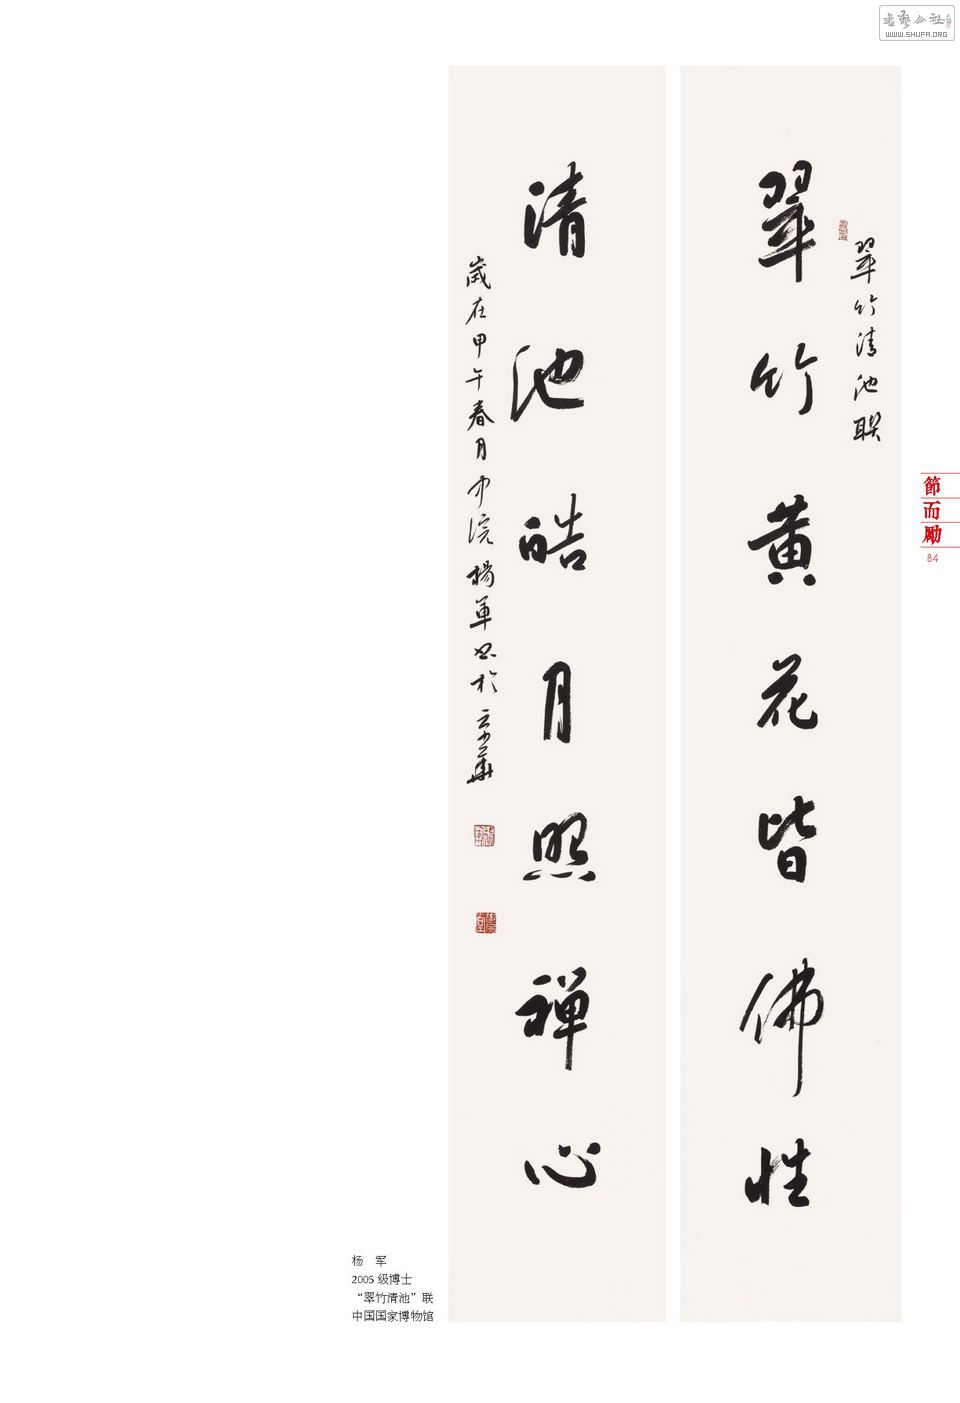 書藝公社
WWW.SHUFA.ORG
翠竹清池聯
翠竹黄花皆佛性
清池皓月照禅心
歲在甲午春月中浣楊軍书於京華
節而勵
84
杨 军
2005 级博士
“翠竹清池”联
中国国家博物馆